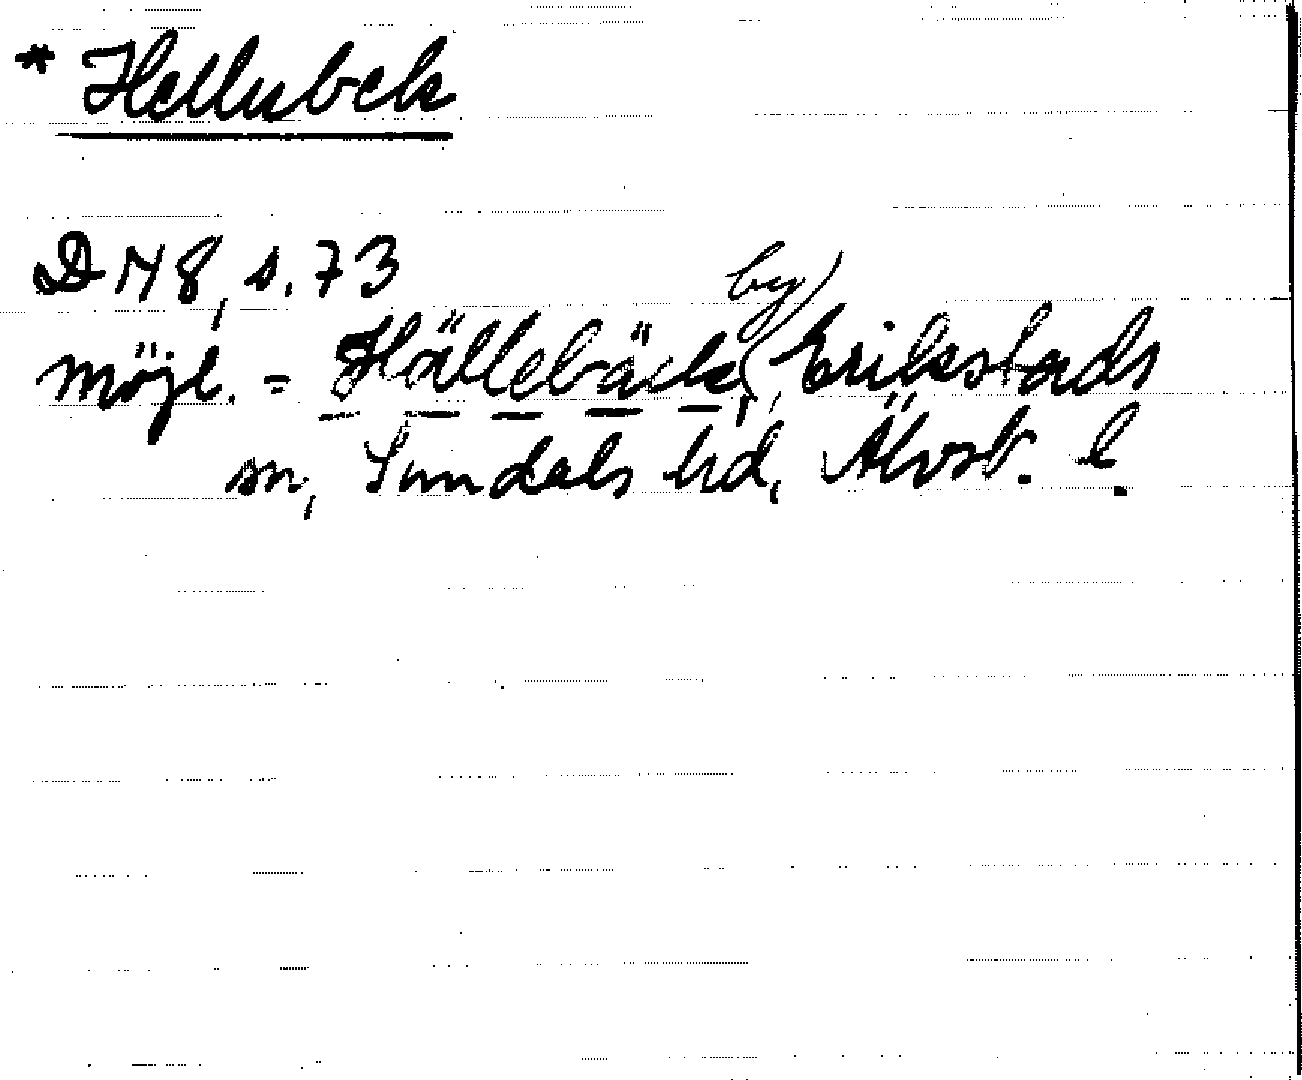 * Hellubek
D N 8, s. 73
möjl. = Hällebäck, by, Erikstads
sn, Sundals hd, Älvsb. l.